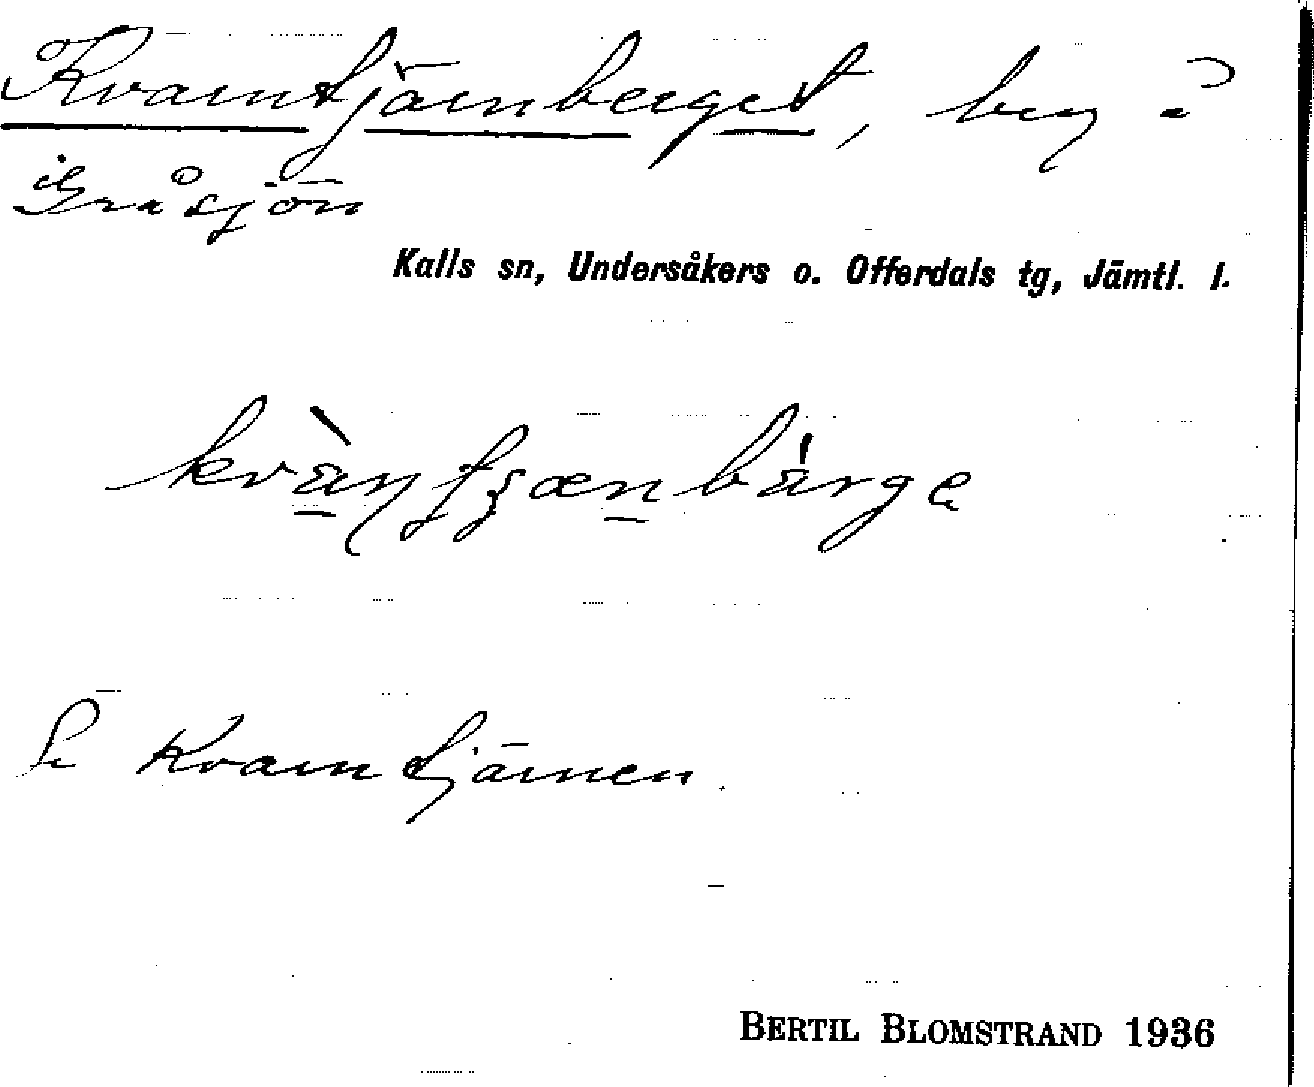 Kvamtjärnberget, berg ?
Gråsjön
Kalls sn, Undersåkers o. Offerdals tg, Jämtl. l.
Se Kvamtjärnen.
BERTIL BLOMSTRAND 1936